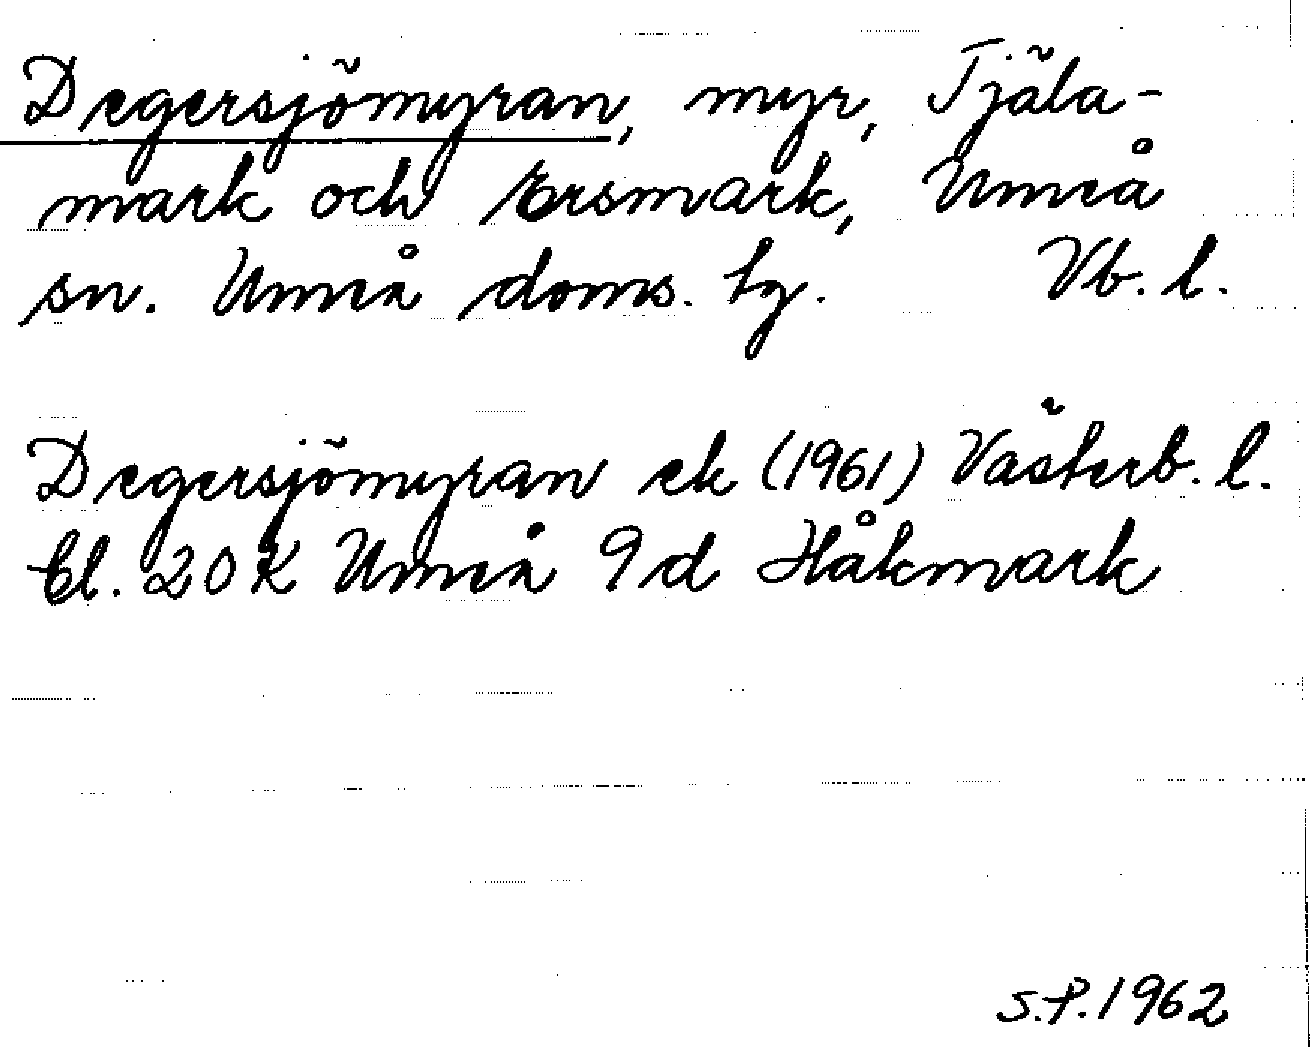 Degersjömyran, myr, Tjäla-
mark och Ersmark, Umeå
sn. Umeå doms. tg. Vb. l.
Degersjömyran ek (1961) Västerb. l.
bl. 20K Umeå 9d Håkmark
S.P. 1962